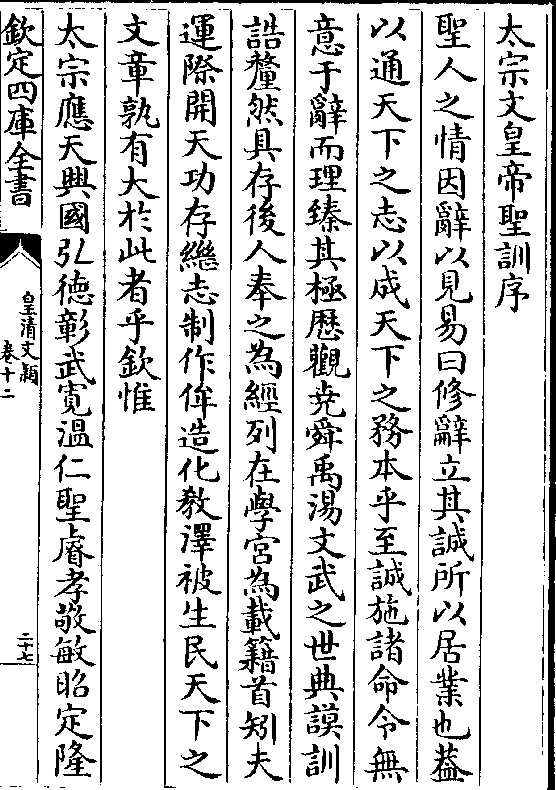 太宗文皇帝聖訓序
聖人之情因辭以見易曰修辭立其誠所以居業也葢
以通天下之志以成天下之務本乎至誠施諸命令無
意于辭而理臻其極歴觀堯舜禹湯文武之世典謨訓
誥犛然具存後人奉之為經列在學宫為載籍首矧夫
運際開天功存繼志制作侔造化教澤被生民天下之
文章孰有大於此者乎欽惟
太宗應天興國弘德彰武寛温仁聖睿孝敬敏昭定隆
欽定四庫全書
皇清文穎
卷十二
二十七